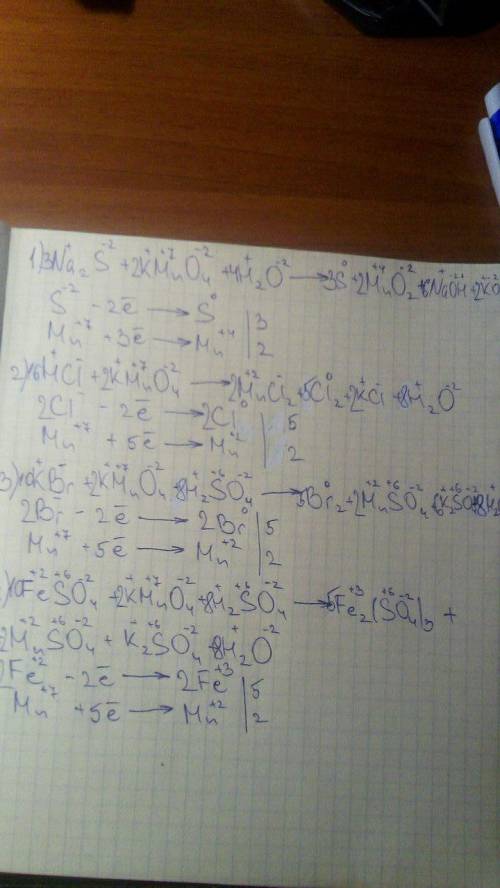 1) 3Na₂⁺S⁻² + 2K⁺Mn⁺⁷O₄⁻² + 4H₂⁺O⁻² → 3S⁰ + 2Mn⁺⁴O₂⁻² + 6NaOH + 2KO
S⁻² - 2ē → S⁰ | 3
Mn⁺⁷ + 3ē → Mn⁺⁴ | 2
2) 16HCl + 2K⁺Mn⁺⁷O₄⁻² → 2Mn⁺²Cl₂ + 5Cl₂⁰ + 2KCl + 8H₂⁺O⁻²
2Cl⁻ - 2ē → 2Cl⁰ | 5
Mn⁺⁷ + 5ē → Mn⁺² | 2
3) 10K⁺Br⁻ + 2K⁺Mn⁺⁷O₄⁻² + 8H₂⁺S⁺⁶O₄⁻² → 5Br₂⁰ + 2Mn⁺²S⁺⁶O₄⁻² + 6K₂⁺S⁺⁶O₄⁻² + 8H₂
2Br⁻ - 2ē → 2Br⁰ | 5
Mn⁺⁷ + 5ē → Mn⁺² | 2
) 10Fe⁺²S⁺⁶O₄⁻² + 2K⁺Mn⁺⁷O₄⁻² + 8H₂⁺S⁺⁶O₄⁻² → 5Fe₂⁺³(S⁺⁶O₄⁻²)₃ +
2Mn⁺²S⁺⁶O₄⁻² + K₂⁺S⁺⁶O₄⁻² + 8H₂⁺O⁻²
2Fe⁺² - 2ē → 2Fe⁺³ | 5
Mn⁺⁷ + 5ē → Mn⁺² | 2